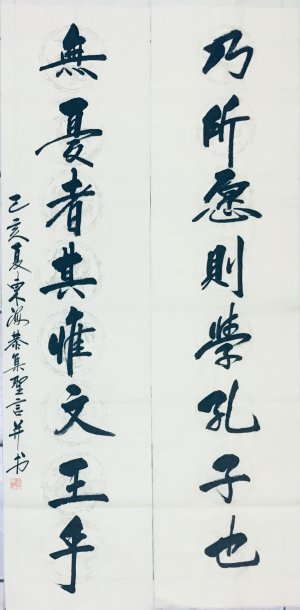 乃所愿則學孔子也
無憂者其惟文王乎
己亥夏東海恭集聖言并书